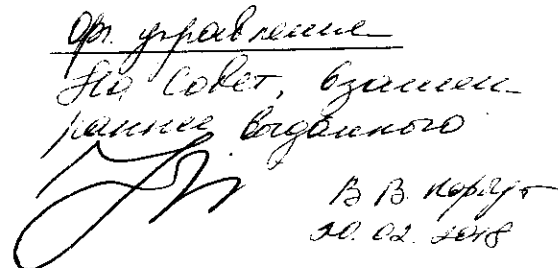 Орг. управление
На Совет, взамен
раннее выданного
В В.
20.02.2018